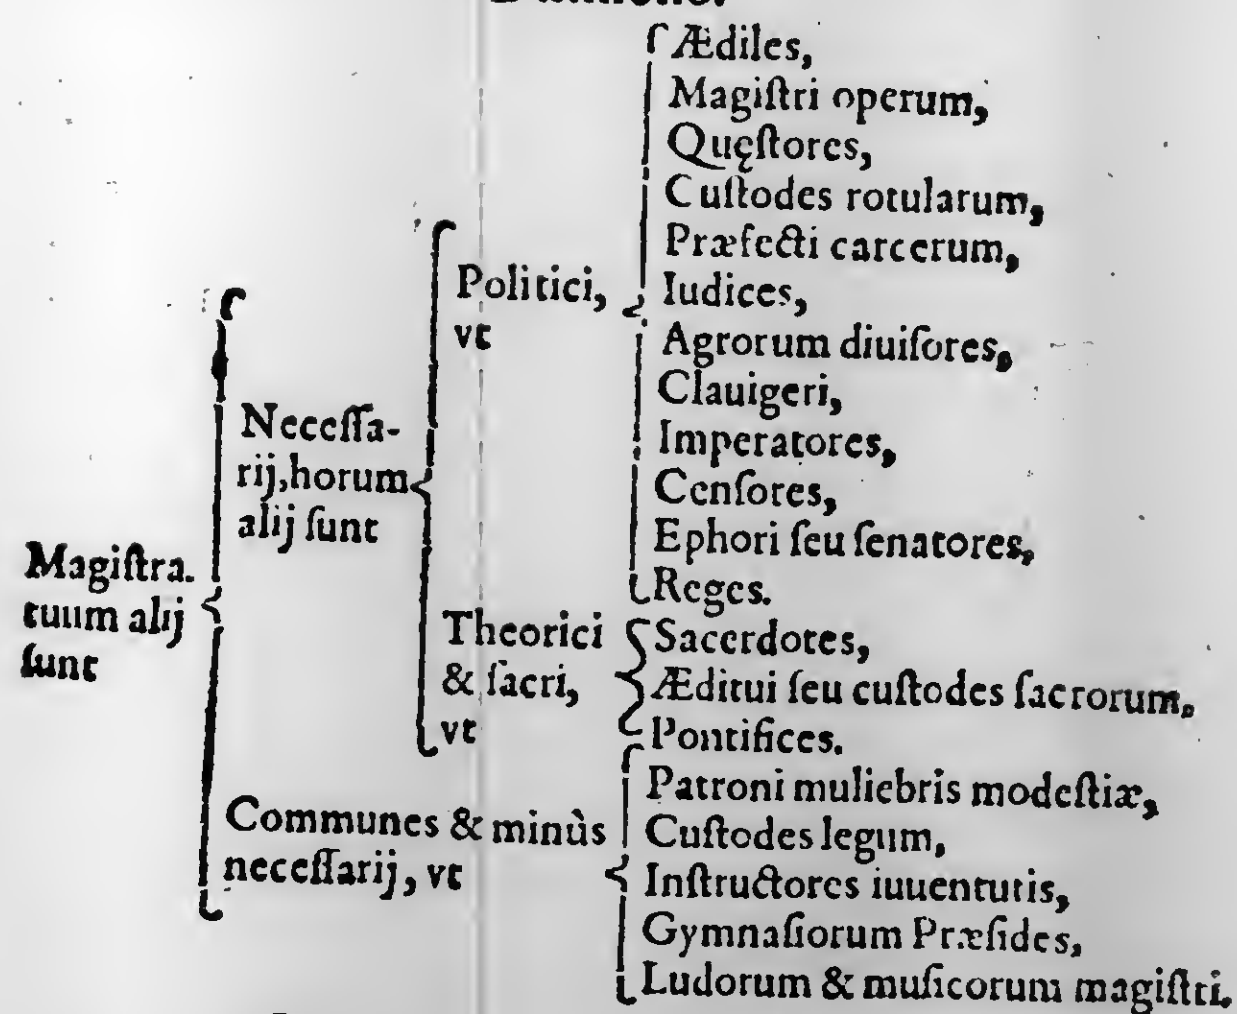 Magiſtra.
tuum alij
ſunt
Neceſſa-
rij, horum
alij ſunt
Politici,
vt
Ædiles,
Magiſtri operum,
Quęſtores,
Cuſtodes rotularum,
Præfecti carcerum,
Iudices,
Agrorum diuiſores,
Clauigeri,
Imperatores,
Cenſores,
Ephori ſeu ſenatores,
Reges.
Theorici
& ſacri,
vt
Sacerdotes,
Æditui ſeu cuſtodes ſacrorum,
Pontifices.
Communes & minùs
neceſſarij, vt
Patroni muliebris modeſtiæ,
Cuſtodes legum,
Inſtructores iuuentutis,
Gymnaſiorum Præſides,
Ludorum & muſicorum magiſtri.